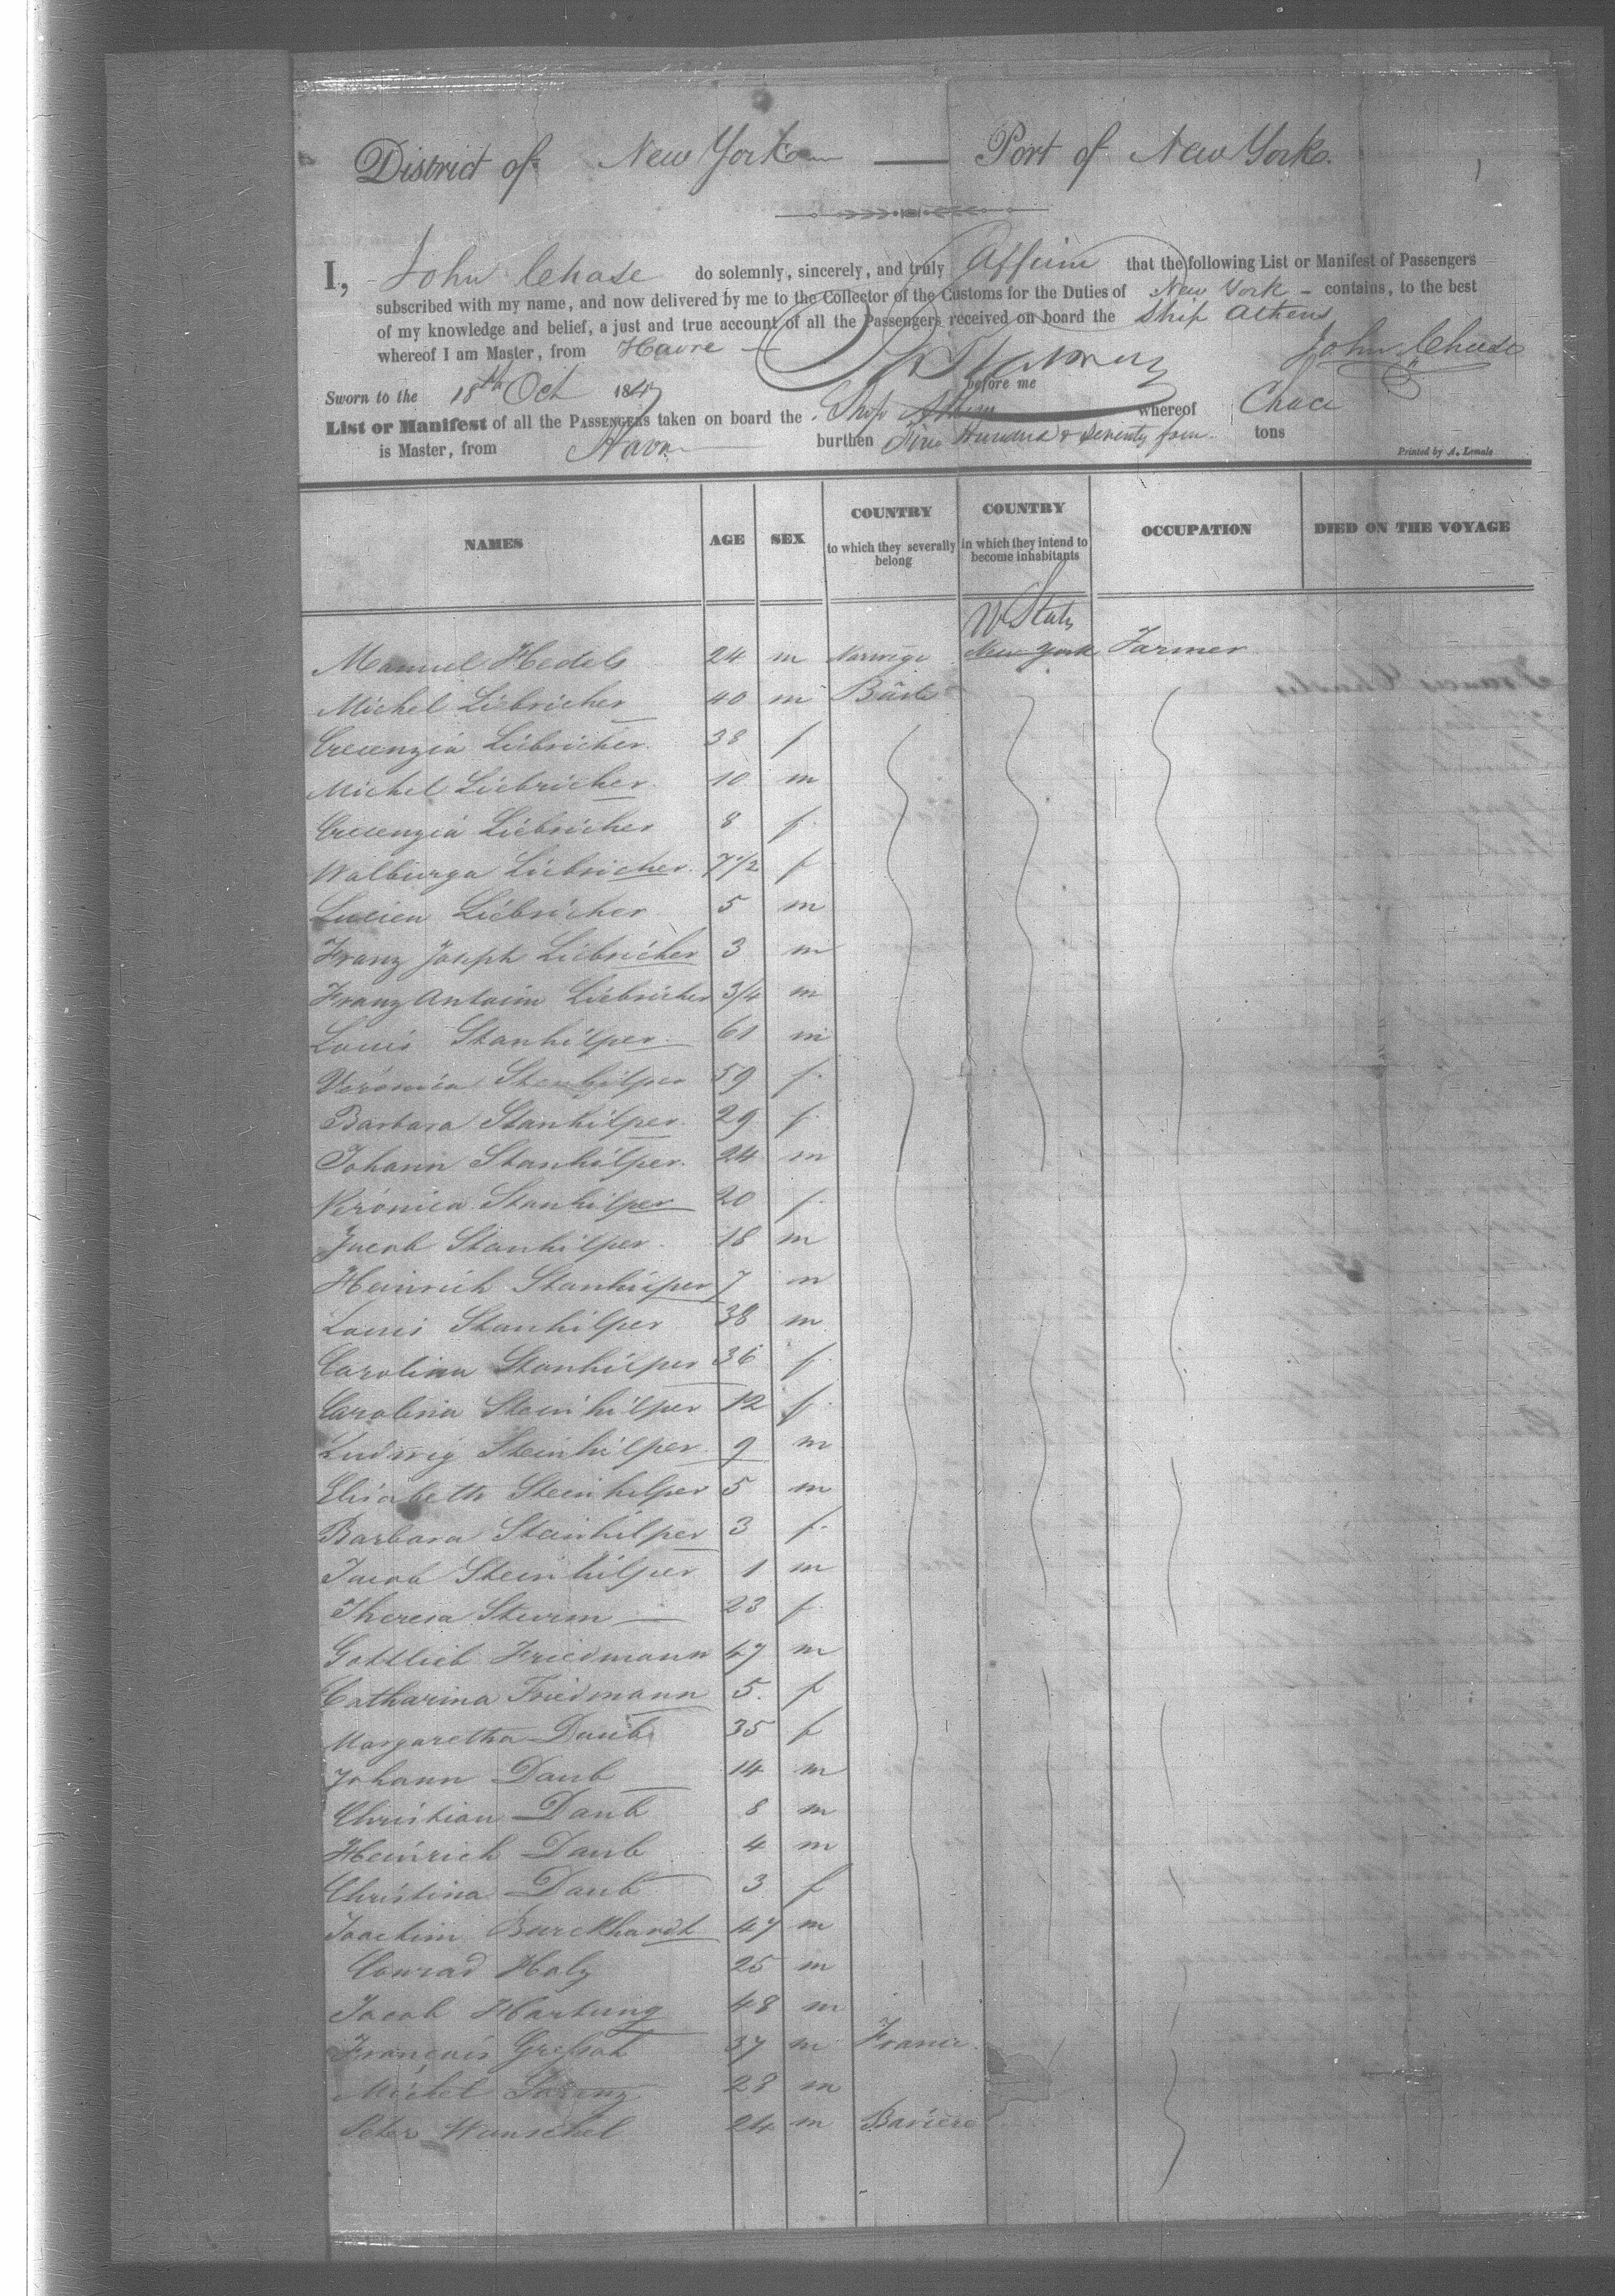 District of New York — Port of New York.
I, John Chase do solemnly, sincerely, and truly Affirm that the following List or Manifest of Passengers
subscribed with my name, and now delivered by me to the Collector of the Customs for the Duties of New York - contains, to the best
of my knowledge and belief, a just and true account of all the Passengers received on board the Ship Athens
whereof I am Master, from Havre
John Chase
Sworn to the 18th Oct 1847 before me
List or Manifest of all the Passengers taken on board the Ship Athens whereof Chace
is Master, from Havre burthen Five Hundred & Seventy four tons
Printed by A. Lemale
NAMES AGE SEX COUNTRY to which they severally belong COUNTRY in which they intend to become inhabitants OCCUPATION DIED ON THE VOYAGE
U States
Manuel Hedels 24 m Norwege New York Farmer
Michel Liebricher 40 m Bade
Crecenzia Liebricher 38 f
Michel Liebricher 10 m
Crecenzia Liebricher 8 f
Walburga Liebricher 7 1/2 f
Lucien Liebricher 5 m
Franz Joseph Liebricher 3 m
Franz Antoine Liebricher 3/4 m
Louis Stanhilper 61 m
Veronica Stanhilper 59 f
Barbara Stanhilper 29 f
Johann Stanhilper 24 m
Veronica Stanhilper 20 f
Jacob Stanhilper 18 m
Heinrich Stanhilper 7 m
Louis Stanhilper 38 m
Carolina Stanhilper 36 f
Carolina Steinhilper 12 f
Ludwig Steinhilper 9 m
Elisabeth Steinhilper 5 m
Barbara Steinhilper 3 f
Jacob Steinhilper 1 m
Theresa Sturm 23 f
Gottlieb Friedmann 47 m
Catharina Friedmann 5 f
Margaretha Daub 35 f
Johann Daub 14 m
Christian Daub 8 m
Heinrich Daub 4 m
Christina Daub 3 f
Joachim Burckhardt 47 m
Conrad Holz 25 m
Jacob Hartung 48 m
François Gressot 37 m France
Michel Lorenz 28 m
Peter Wunschel 24 m Baviere